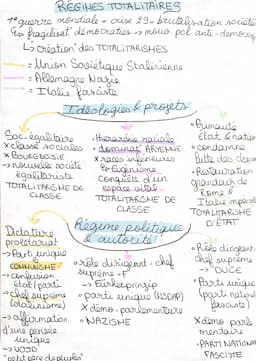 RÉGINES TOTALITAIRES
1e guerre mondiale + crise 29 = brutalisation société
↳ fragilisat° démocraties → mouv. pol anti-démocra
↳ création des TOTALITARISMES
- Union Soviétique Stalinienne
- Allemagne Nazie
- Italie fasciste
Idéologies & projets
Soc. égalitaire
x classe sociales
x BOURGEOISIE
→ nouvelle société
égalitariste
TOTALITARISME DE
CLASSE
• Hiérarchie raciale
• dominat° ARYENNE
x races inférieures
↳ Eugénisme
conquête d'un
espace vital
TOTALITARISME DE
CLASSE
• Primauté
État & nation
• condamne
lutte des classes
• Restauration
grandeur de
Rome &
Italie impérial
TOTALITARISME
D'ÉTAT
Régime politique
& autorité
Dictature
prolétariat
→ Parti unique
COMMUNISME
→ confusion
état/parti
→ Chef suprême
(stalinisme)
→ affirmation
d'une pensée
unique
→ VOJD
"petit père des peuples"
• rôle dirigeant - chef
suprême
→ Führerprinzip
• parti unique (NSDAP)
x démo-parlementaire
• NAZISME
• Rôle dirigeant
chef suprême
→ DUCE
• Parti unique
(parti national
fasciste)
x démo parle
mentaire
- PARTI NATIONAL
FASCISTE